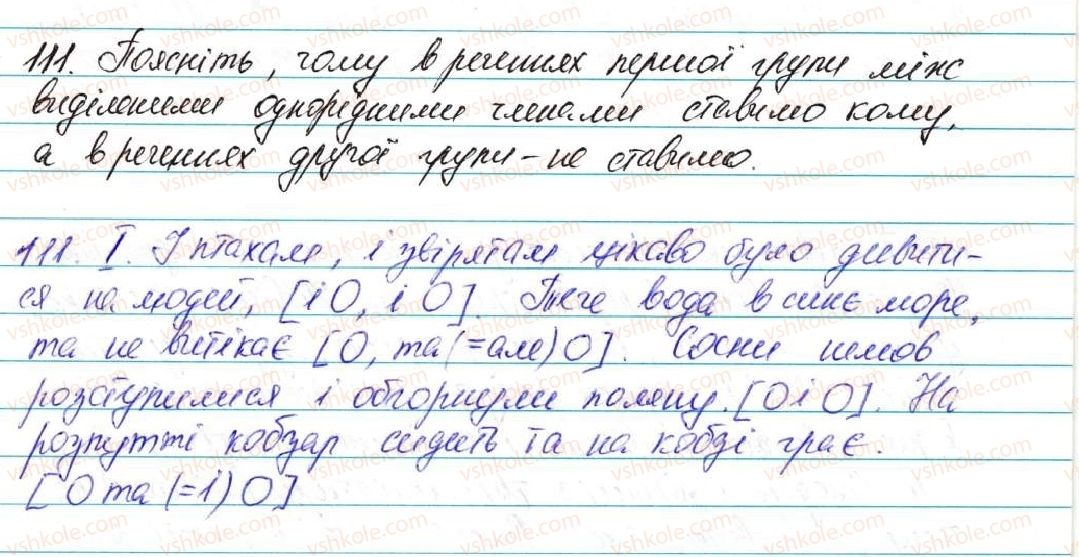 111. Поясніть, чому в реченнях першої групи між
виділеними однорідними членами ставимо кому,
а в реченнях другої групи – не ставимо.
111. I. І птахам, і звірятам цікаво було дивити-
ся на людей, [і О, і О]. Тече вода в синє море,
та не витікає [О, та (=але) О]. Сосни немов
розступилися і обгорнули поляну. [О і О]. На
розпутті кобзар сидить та на кобзі грає.
[О та (=і) О]